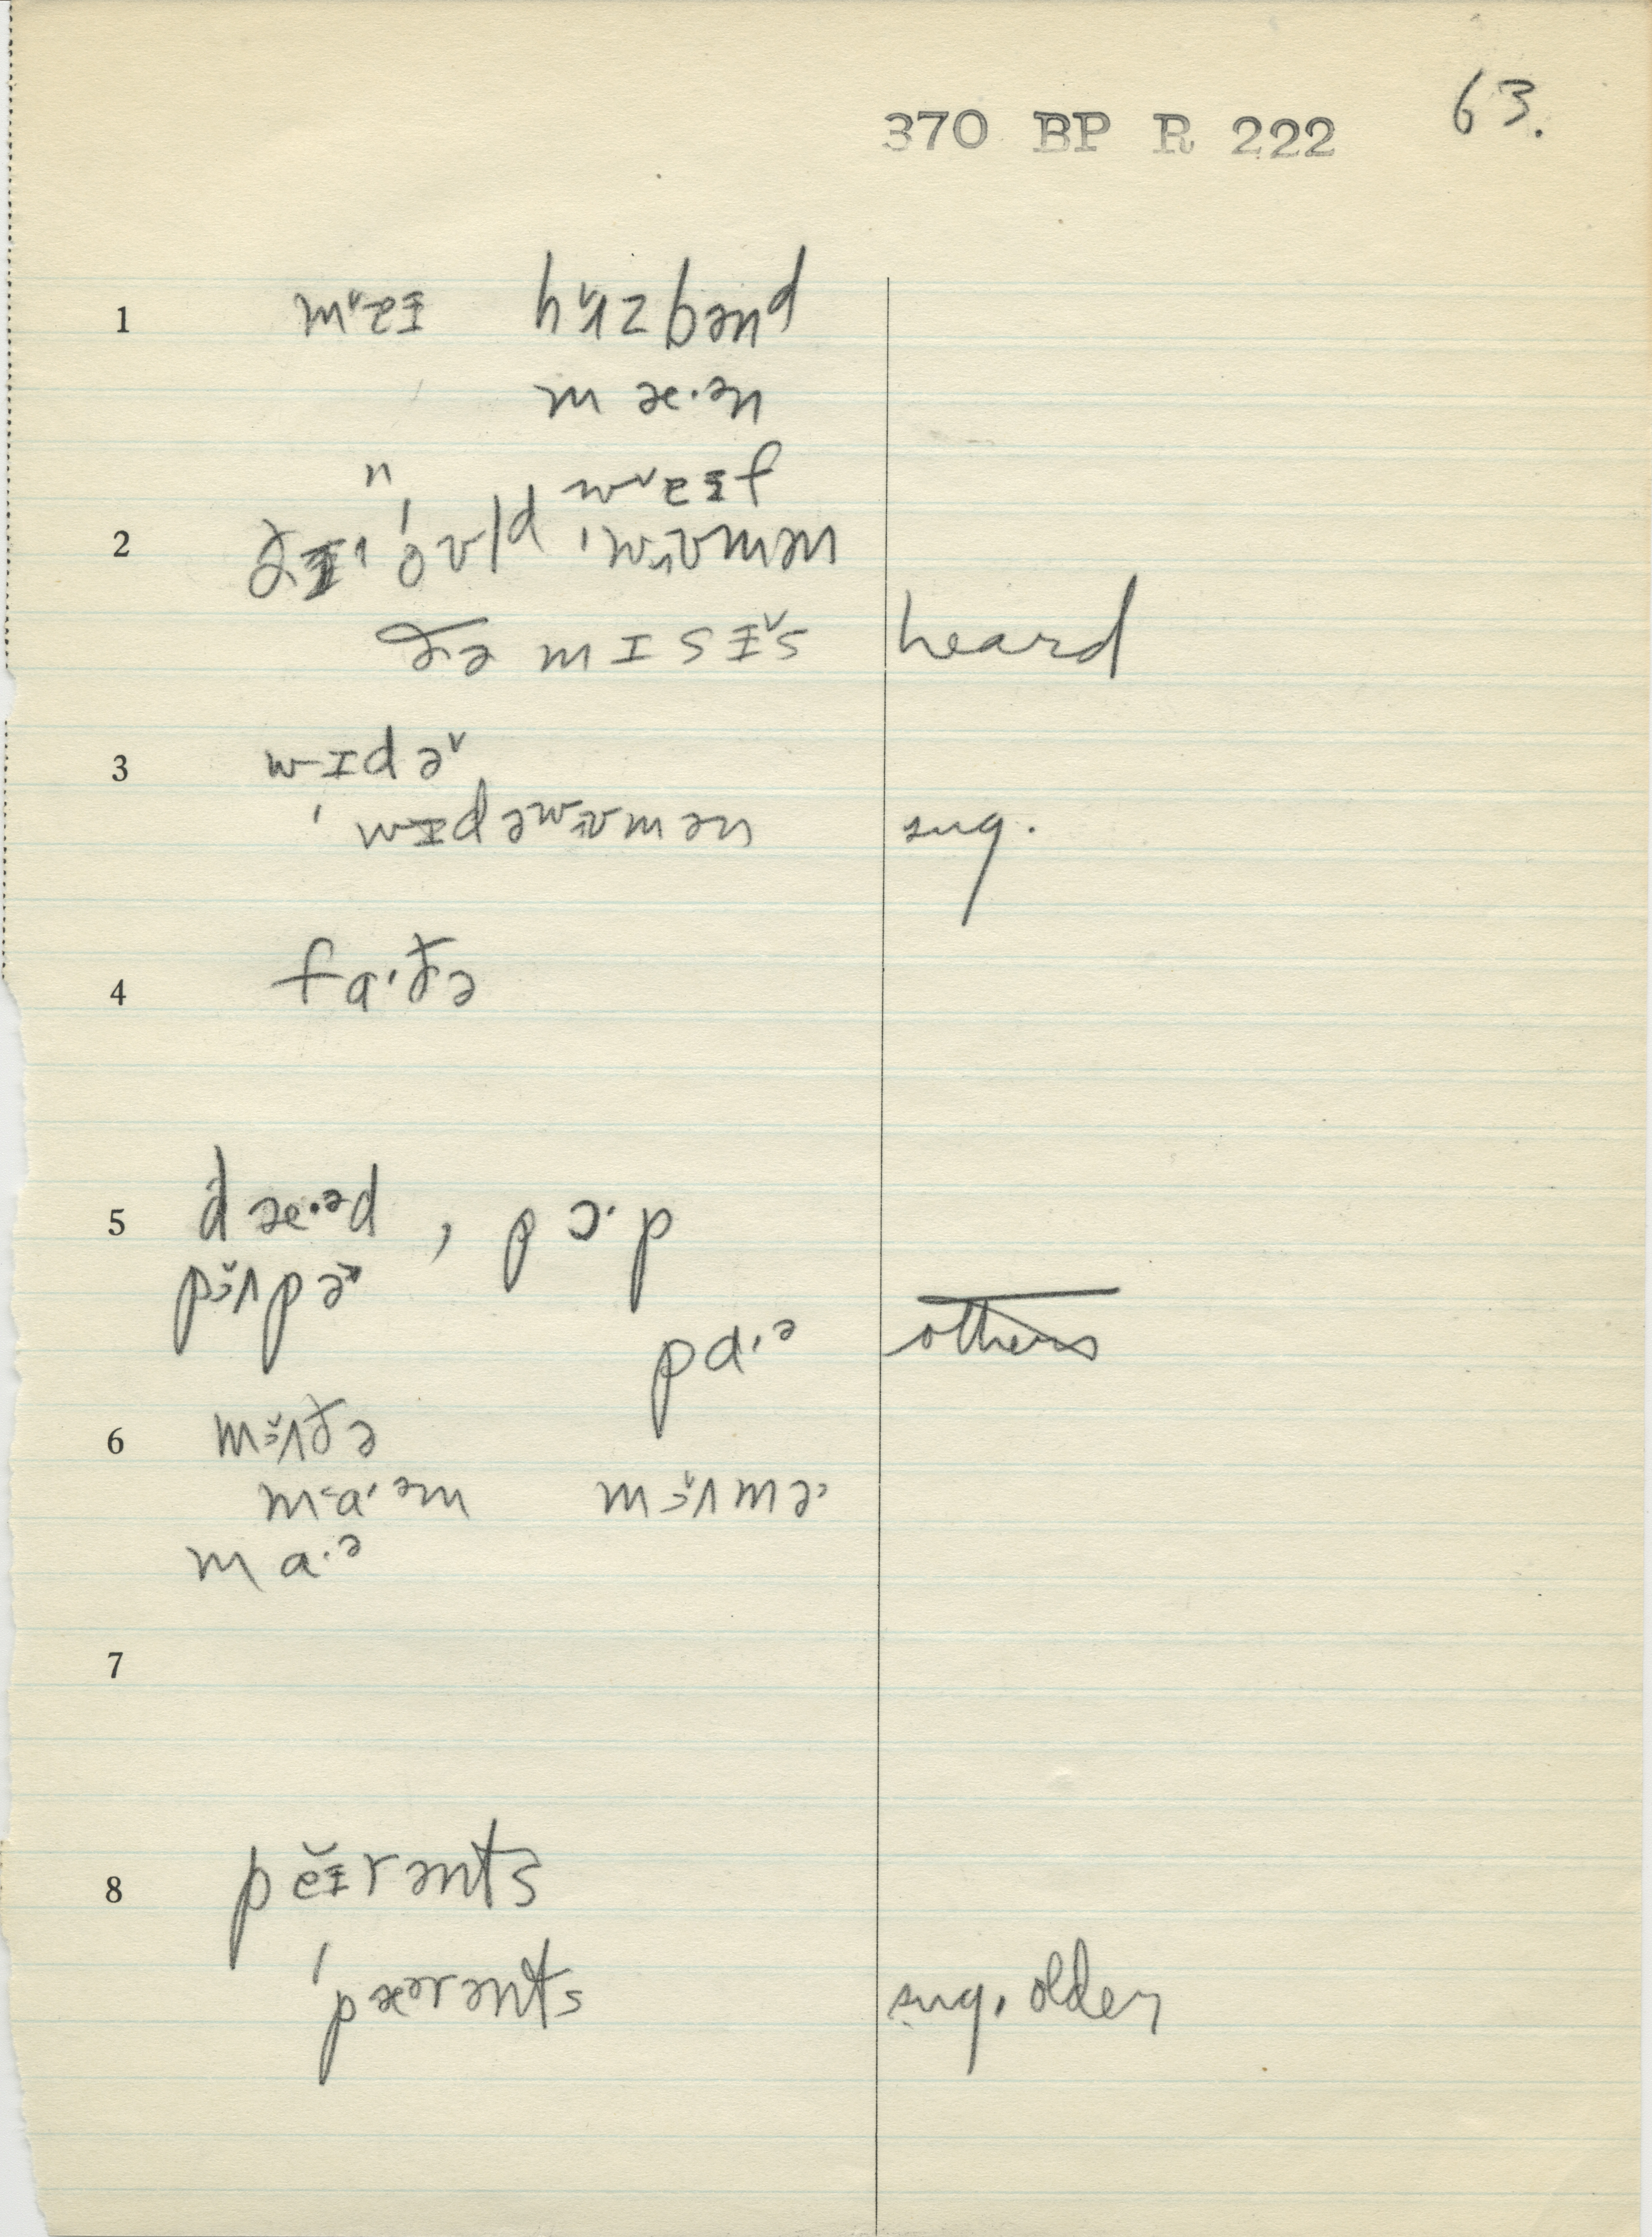 63.
370 BP R 222
1 mᵛaɪ hʌ̌zbənd
mæ·ən
n wᵛaɪf
2 ðɪ ˈoʊld ˈwʊmən
ðə mɪsɪ̌s heard
3 wɪdəᵛ
ˈwɪdəwʊmən sug.
4 fɑ·ðə
5 dæ·əd , pɔ·p
pɜ̌ʌpə
pɑ·ə others
6 mɜ̌ʌðə
ma·əm mɜ̌ʌmə
ma·ə
7
8 peɪ̆rənts
ˈpæərənts sug. older